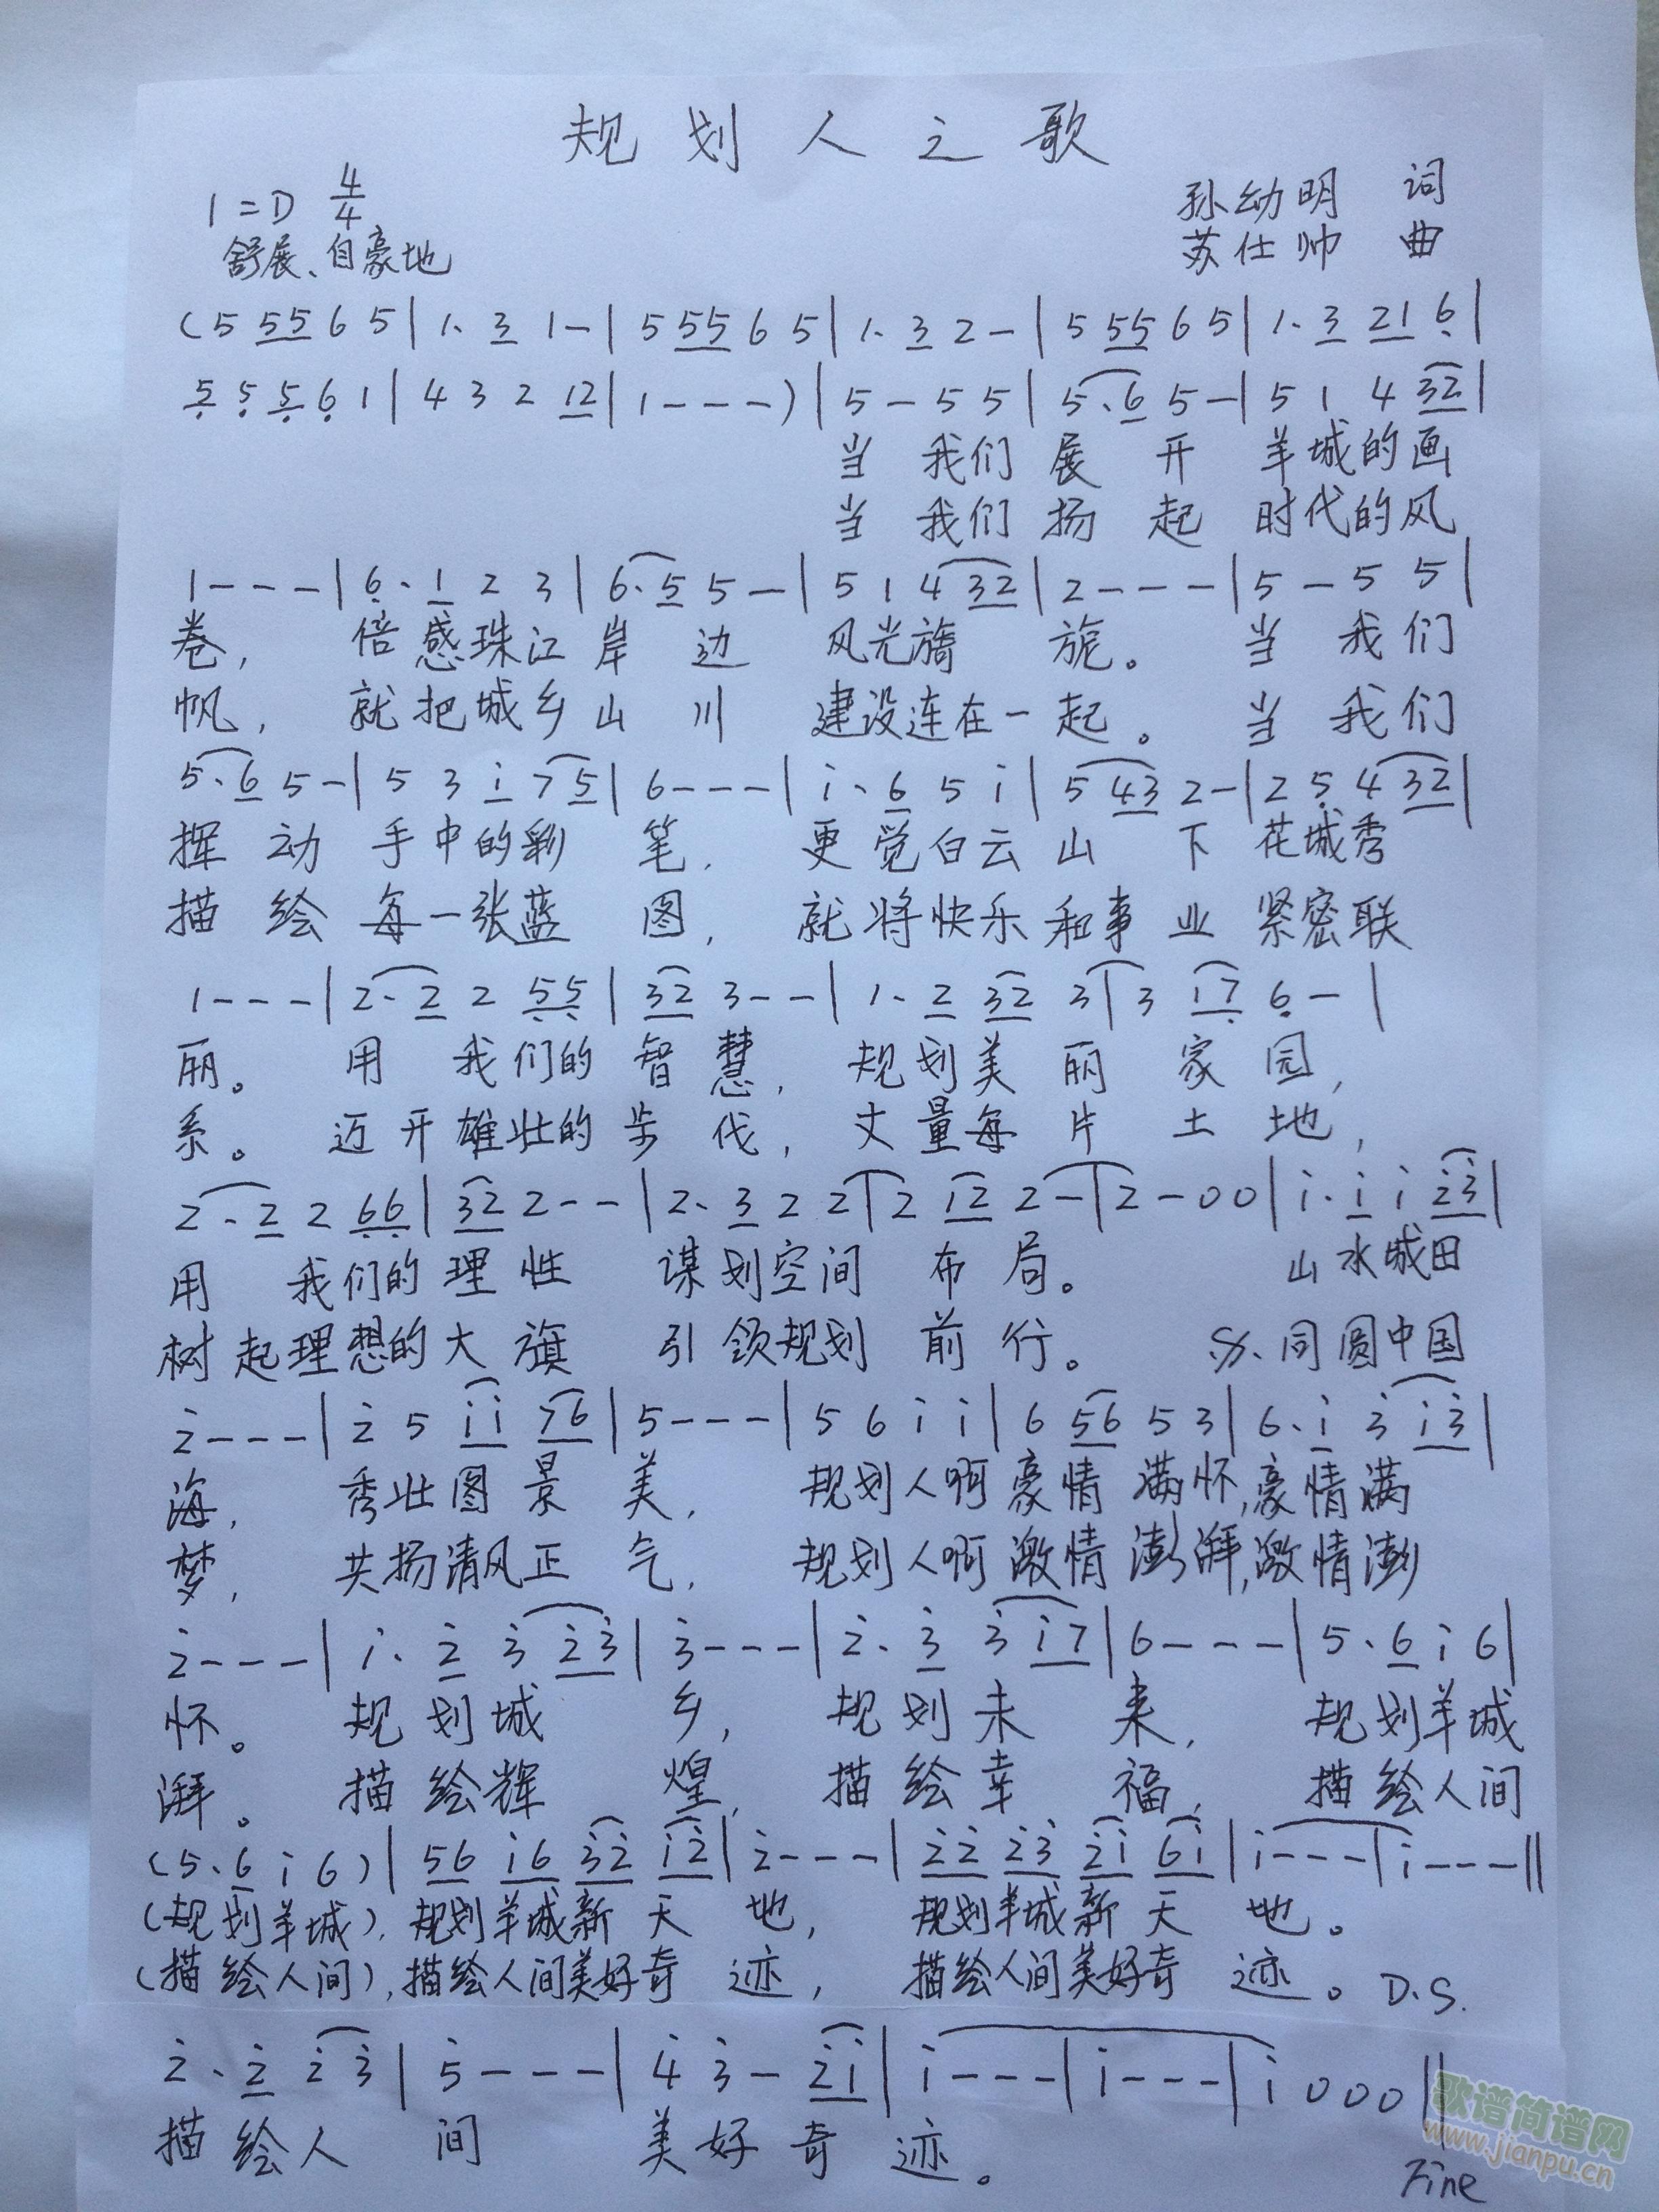 规划人之歌
1=D 4/4
孙幼明 词
舒展、自豪地
苏仕帅 曲
(5 55 6 5|1. 3 1-|5 55 6 5|1. 3 2-|5 55 6 5|1. 3 21 6|
5 5 5 6 1|4 3 2 12|1---)|5-5 5|5.6 5-|5 1 4 32|
当 我们 展 开 羊城的画
当 我们 扬 起 时代的风
1---|6. 1 2 3|6.5 5-|5 1 4 32|2---|5-5 5|
卷, 倍感珠江岸 边 风光旖 旎。 当 我们
帆, 就把城乡山 川 建设连在一起。 当 我们
5.6 5-|5 3 i 7 5|6---|i. 6 5 i|5 43 2-|2 5 4 32|
挥 动 手中的彩 笔, 更觉白云山 下 花城秀
描 绘 每一张蓝 图, 就将快乐和事 业 紧密联
1---|2. 2 2 55|32 3--|1. 2 32 3|3 i7 6-|
丽。 用 我们的智慧, 规划美 丽 家 园,
系。 迈开雄壮的步 伐, 丈量每 片 土 地,
2. 2 2 66|32 2--|2. 3 2 2|2 12 2-|2-00|i. i i 23|
用 我们的理 性 谋划空间 布 局。 山水城田
树起理想的大 旗 引领规划 前 行。 同圆中国
2---|2 5 ii 76|5---|5 6 i i|6 56 5 3|6. i 3 i3|
海, 秀壮图景 美, 规划人啊豪情 满怀,豪情满
梦, 共扬清风正 气, 规划人啊激情澎湃,激情澎
2---|i. 2 3 23|3---|2. 3 3 i7|6---|5. 6 i 6|
怀。 规划城 乡, 规划未 来, 规划羊城
湃。 描绘辉 煌, 描绘幸 福, 描绘人间
(5. 6 i 6)|56 i6 32 i2|2---|22 23 2i 6i|i---|i---||
(规划羊城),规划羊城新天 地, 规划羊城新天 地。
(描绘人间),描绘人间美好奇 迹, 描绘人间美好奇 迹。 D.S.
2. 2 2 3|5---|4 3-2i|i---|i---|i 000||
描 绘人 间 美好奇 迹。
Fine
歌谱简谱网
www.jianpu.cn